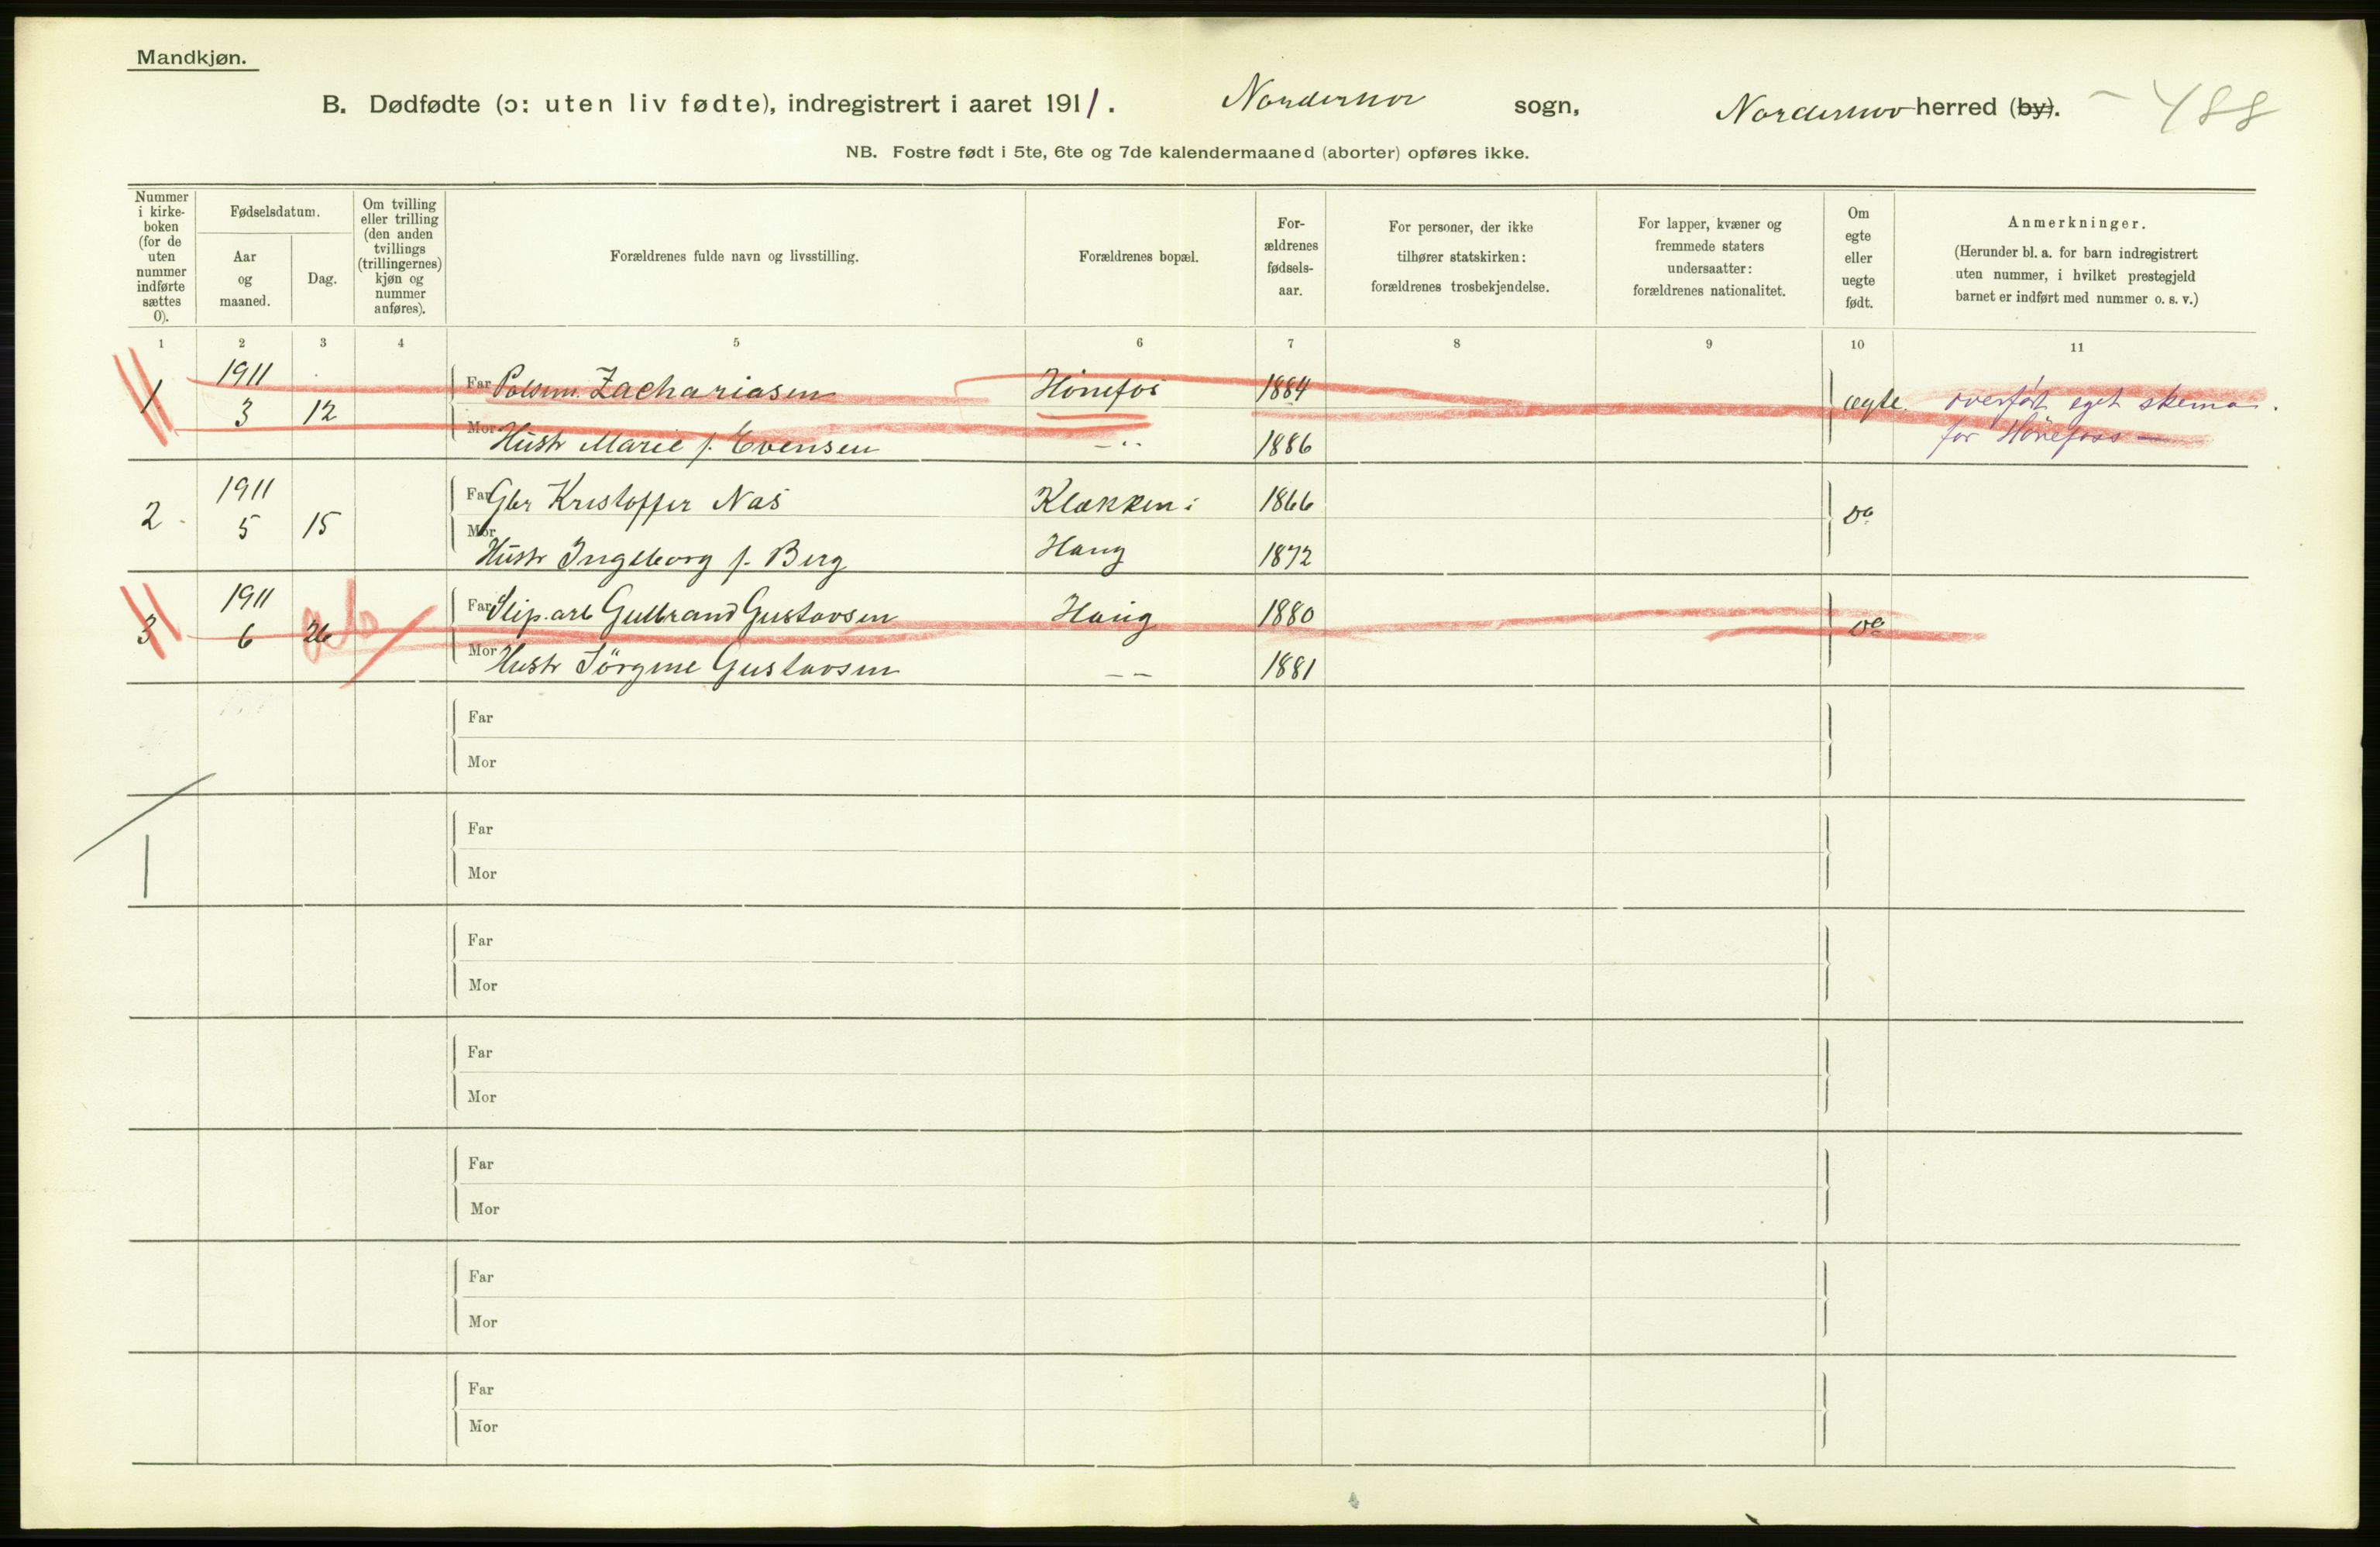 Mandkjøn.
B. Dødfødte (ɔ: uten liv fødte), indregistrert i aaret 1911. Norderhov sogn, Norderhov herred (by). 488
NB. Fostre født i 5te, 6te og 7de kalendermaaned (aborter) opføres ikke.
Nummer i kirke-boken (for de uten nummer indførte sættes 0).
Fødselsdatum.
Aar og maaned.
Dag.
Om tvilling eller trilling (den anden tvillings (trillingernes) kjøn og nummer anføres).
Forældrenes fulde navn og livsstilling.
Forældrenes bopæl.
For-ældrenes fødsels-aar.
For personer, der ikke tilhører statskirken: forældrenes trosbekjendelse.
For lapper, kvæner og fremmede staters undersaatter: forældrenes nationalitet.
Om egte eller uegte født.
Anmerkninger.
(Herunder bl. a. for barn indregistrert uten nummer, i hvilket prestegjeld barnet er indført med nummer o. s. v.)
1 2 3 4 5 6 7 8 9 10 11
1 1911 3 12 Far Zachariasen Hönefos 1884 ægte. overført eget skema.
Mor Hustr Marie f. Evensen —"— 1886 for Hönefoss —
2 1911 5 15 Far Gbr Kristoffer Nas Klækken i 1866 Do
Mor Hustr Ingeborg f. Berg Haug 1872
3 1911 6 26 ab Far Slip.arb Gulbrand Gustavsen Haug 1880 Do
Mor Hustr Jörgine Gustavsen — — 1881
Far
Mor
Far
1
Mor
Far
Mor
Far
Mor
Far
Mor
Far
Mor
Far
Mor